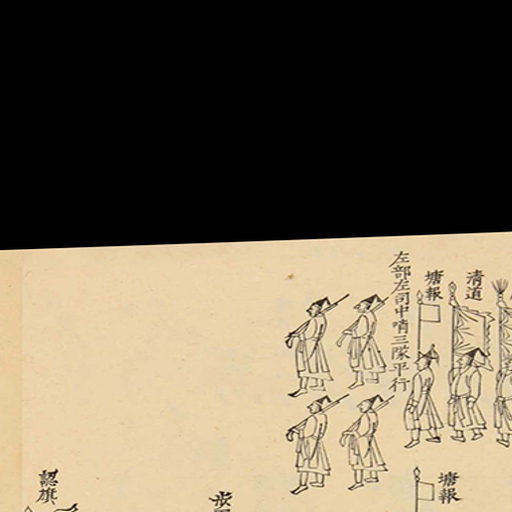 清道
塘報
左部左司中哨三隊平行
塘報
認旗